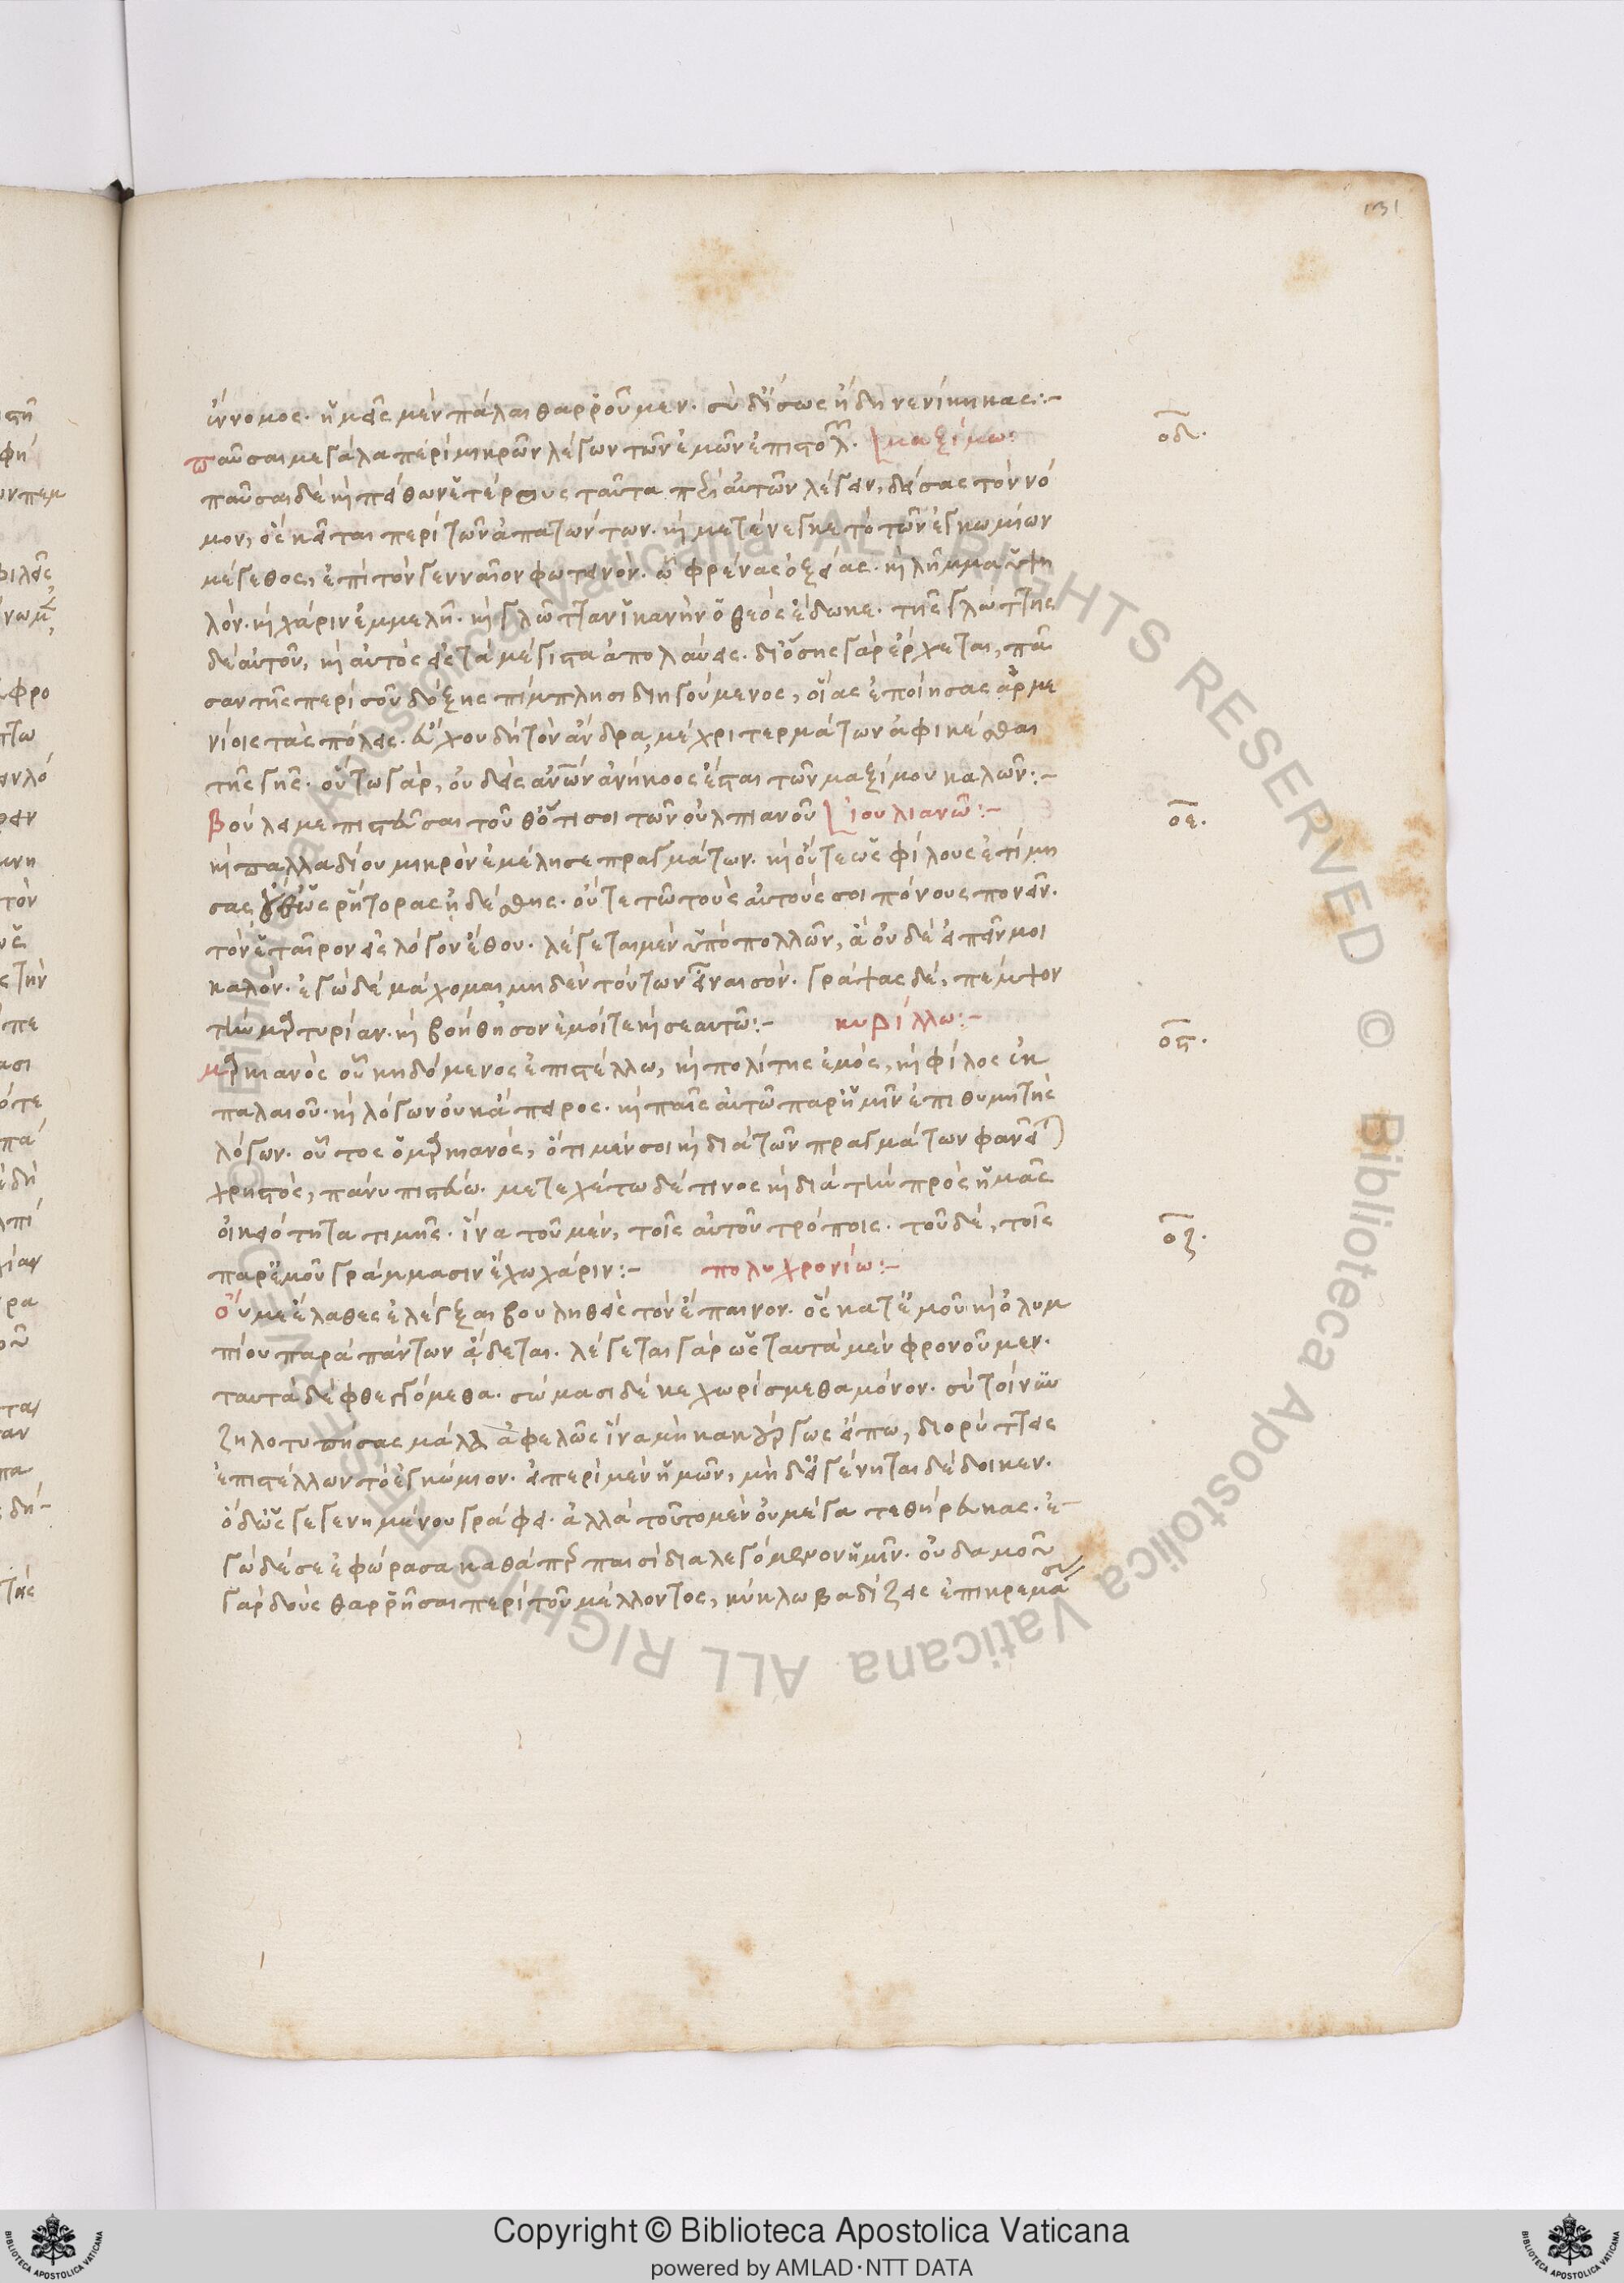 131
ἔννομος. ἡμεῖς μὲν πάλαι θαρροῦμεν. σὺ δ' ἴσως ἤδη νενίκηκας:-
παῦσαι μεγάλα περὶ μικρῶν λέγων τῶν ἐμῶν ἐπιστολ. μαξίμω: οδ.
παῦσαι δὲ καὶ πείθων ἑτέρους ταῦτα περὶ αὐτῶν λέγειν, δείσας τὸν νό
μον, ὃς κεῖται περὶ τῶν ἀπατώντων. καὶ μετένεγκε τὸ τῶν ἐγκωμίων
μέγεθος, ἐπὶ τὸν γενναῖον φωτεινόν. ὦ φρένας ὀξείας. καὶ λῆμμα ὑψη
λόν. καὶ χάριν ἐμμελῆ. καὶ γλῶτταν ἱκανὴν ὁ θεὸς ἔδωκε. τῆς γλώττης
δὲ αὐτοῦ, καὶ αὐτὸς εἰς τὰ μέγιστα ἀπολαύεις. δι' ὅσης γὰρ ἔρχεται, πᾶ
σαν τῆς περὶ σοῦ δόξης πίμπλησι διηγούμενος, οἵας ἐποίησας ἀρμε
νίοις τὰς πόλεις. εὔχου δὴ τὸν ἄνδρα, μέχρι τερμάτων ἀφικέσθαι
τῆς γῆς. οὕτω γάρ, οὐδεὶς ἀνων ἀνήκοος ἔσται τῶν μαξίμου καλῶν:-
βούλει με πιστεῦσαι τοῦθ' ὅτι σοι τῶν οὐλπιανοῦ ἰουλιανῶ:- οε.
καὶ παλλαδίου μικρὸν ἐμέλησε πραγμάτων. καὶ οὔτε ὡς φίλους ἐτίμη
σας ὡς ῥήτορας ᾐδέσθης. οὔτε τῶ τοὺς αὐτούς σοι πόνους πονεῖν.
τὸν ἑταῖρον εἰς λόγον ἔθου. λέγεται μὲν ὑπὸ πολλῶν, ἃ οὐδὲ εἰπεῖν μοι
καλόν. ἐγὼ δὲ μάχομαι μηδὲν τούτων εἶναι σόν. γράψας δέ, πέμψον
τὴν μρτυρίαν. καὶ βοήθησον ἐμοί τε καὶ σεαυτῶ:- κυρίλλω:- ος.
μρκιανὸς οὗ κηδόμενος ἐπιστέλλω, καὶ πολίτης ἐμός, καὶ φίλος ἐκ
παλαιοῦ. καὶ λόγων οὐκ ἄπειρος. καὶ παῖς αὐτῶ παρ' ἡμῖν ἐπιθυμητὴς
λόγων. οὗτος ὁ μρκιανός, ὅτι μέν σοι καὶ διὰ τῶν πραγμάτων φανεῖται
χρηστός, πάνυ πιστεύω. μετεχέτω δέ τινος καὶ διὰ τὴν πρὸς ἡμᾶς
οἰκειότητα τιμῆς. ἵνα τοῦ μέν, τοῖς αὐτοῦ τρόποις. τοῦ δέ, τοῖς οζ.
παρ' ἐμοῦ γράμμασιν ἔχω χάριν:- πολυχρονίω:-
οὔ με ἔλαθες ἐλέγξαι βουληθεὶς τὸν ἔπαινον. ὃς κατ' ἐμοῦ καὶ ὀλυμ
πίου παρὰ πάντων ἄδεται. λέγεται γὰρ ὡς ταυτὰ μὲν φρονοῦμεν.
ταυτὰ δὲ φθεγγόμεθα. σώμασι δὲ κεχωρίσμεθα μόνον. σὺ τοίνυν
ζηλοτυπήσας μάλ' ἀφελῶς ἵνα μὴ κακούργως εἴπω, διορύττεις
ἐπιστέλλων τὸ ἐγκώμιον. εἰ περὶ μὲν ἡμῶν, μὴ δ γένηται δέδοικεν.
ὁ δ' ὡς γεγενημένου γράφει. ἀλλὰ τοῦτο μὲν οὐ μέγα τεθήρευκας. ἐ
γὼ δέ σε ἐφώρασα καθάπερ παισὶ διαλεγόμενον ἡμῖν. οὐδαμοῦ
γὰρ δοὺς θαρρῆσαι περὶ τοῦ μέλλοντος, κύκλω βαδίζεις ἐπικρεμᾶ
Copyright © Biblioteca Apostolica Vaticana
powered by AMLAD·NTT DATA